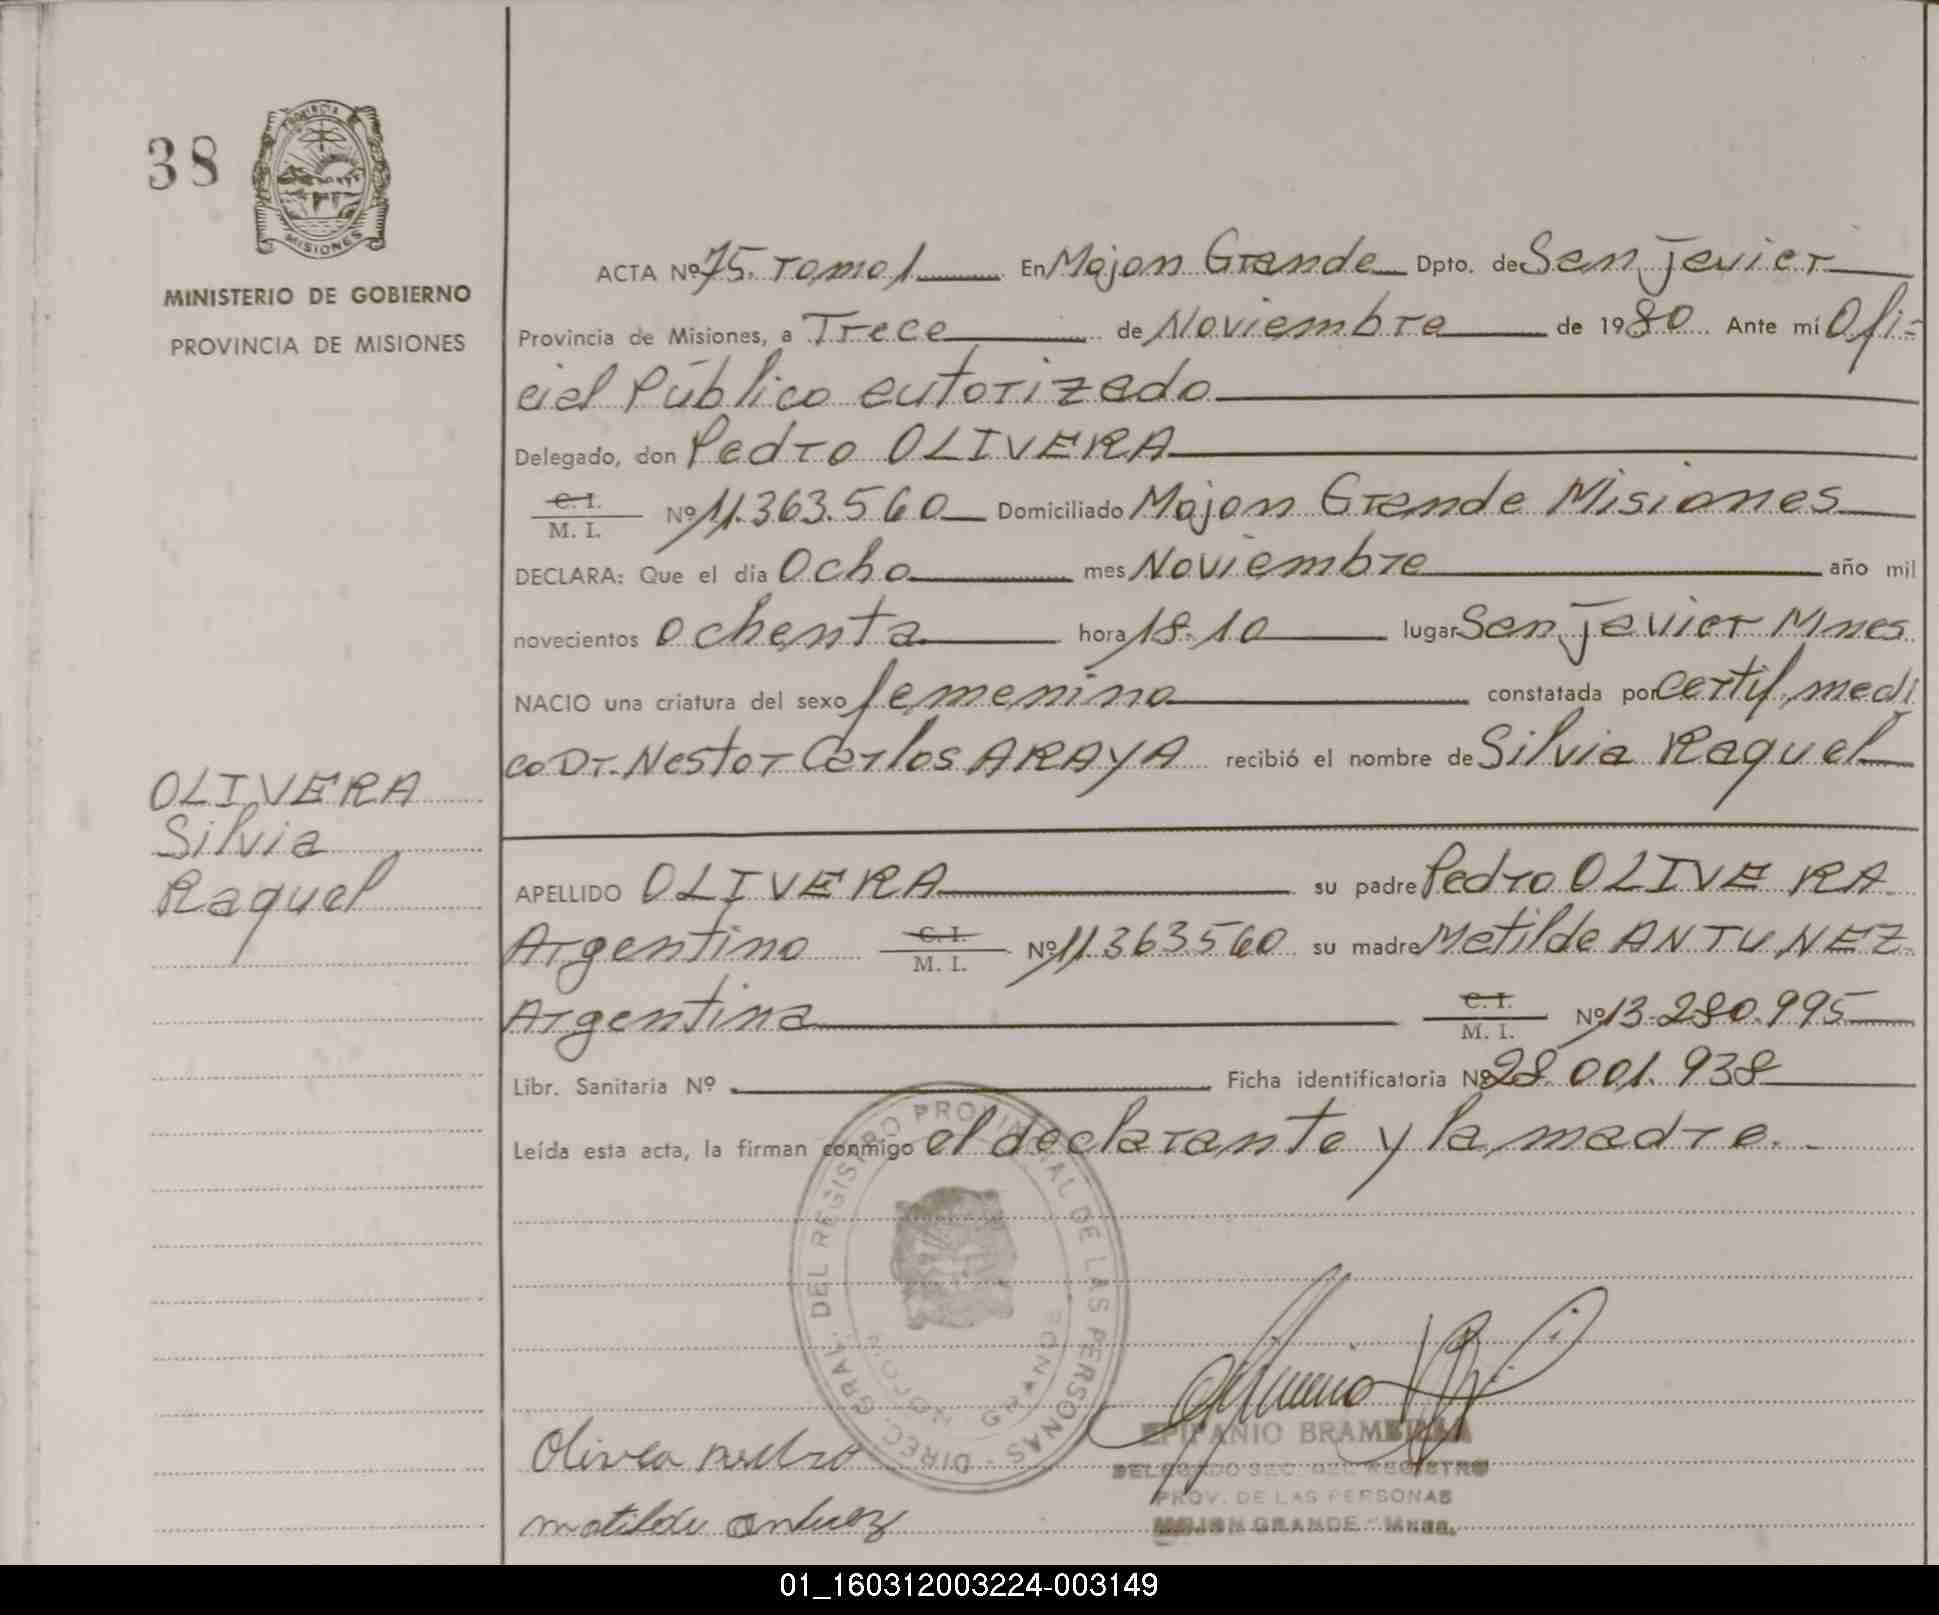 38
PROVINCIA
MISIONES
MINISTERIO DE GOBIERNO
PROVINCIA DE MISIONES
OLIVERA
Silvia
Raquel
ACTA Nº 75. Tomo 1 En Mojon Grande Dpto. de San Javier
Provincia de Misiones, a Trece de Noviembre de 1980 Ante mí Ofi-
cial Público autorizado
Delegado, don Pedro OLIVERA
C. I.
M. I. Nº 11.363.560 Domiciliado Mojon Grande Misiones
DECLARA: Que el día Ocho mes Noviembre año mil
novecientos ochenta hora 18.10 lugar San Javier Mnes
NACIO una criatura del sexo femenino constatada por certif. medi
co Dr. Nestor Carlos ARAYA recibió el nombre de Silvia Raquel
APELLIDO OLIVERA su padre Pedro OLIVERA
Argentino C. I. M. I. Nº 11.363.560 su madre Matilde ANTUNEZ
Argentina C. I. M. I. Nº 13.280.995
Libr. Sanitaria Nº Ficha identificatoria Nº 28.001.938
Leída esta acta, la firman conmigo el declarante y la madre.-
DIREC. GRAL. DEL REGISTRO PROVINCIAL DE LAS PERSONAS
MOJON GRANDE
EPIFANIO BRAMBILLA
DELEGADO SEC. DEL REGISTRO
PROV. DE LAS PERSONAS
MOJON GRANDE - Mnes.
matilde
01_160312003224-003149